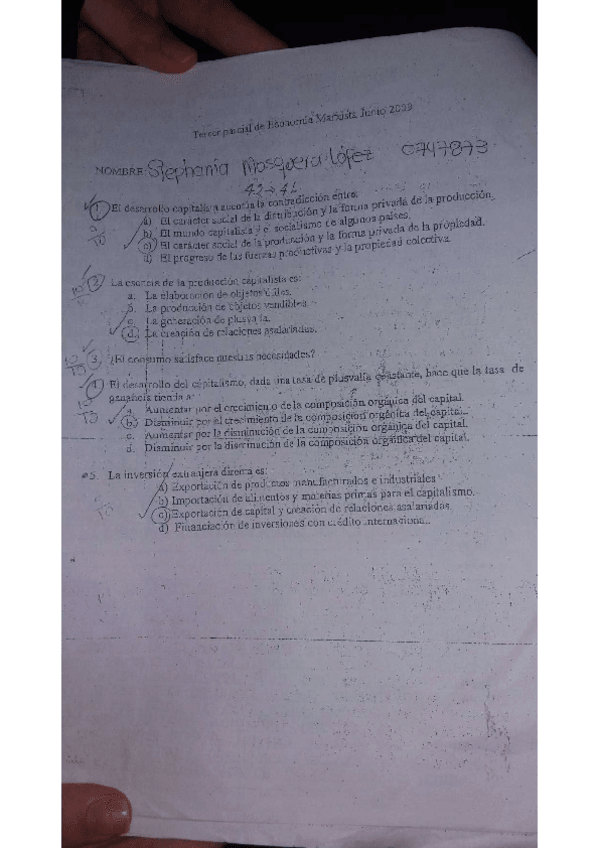 Tercer parcial de Economía Marxista Junio 2009
NOMBRE: Stephania Mosquera López 0747873
1. El desarrollo capitalista acentúa la contradicción entre:
a) El carácter social de la distribución y la forma privada de la producción.
b) El mundo capitalista y el socialismo de algunos países.
c) El carácter social de la producción y la forma privada de la propiedad.
d) El progreso de las fuerzas productivas y la propiedad colectiva.
2. La esencia de la producción capitalista es:
a. La elaboración de objetos útiles.
b. La producción de objetos vendibles.
c. La generación de plusvalía.
d. La creación de relaciones asalariadas.
3. ¿El consumo satisface nuestras necesidades?
4. El desarrollo del capitalismo, dada una tasa de plusvalía constante, hace que la tasa de
ganancia tienda a:
a. Aumentar por el crecimiento de la composición orgánica del capital.
b. Disminuir por el crecimiento de la composición orgánica del capital.
c. Aumentar por la disminución de la composición orgánica del capital.
d. Disminuir por la disminución de la composición orgánica del capital.
5. La inversión extranjera directa es:
a) Exportación de productos manufacturados e industriales
b) Importación de alimentos y materias primas para el capitalismo.
c) Exportación de capital y creación de relaciones asalariadas.
d) Financiación de inversiones con crédito internacional.